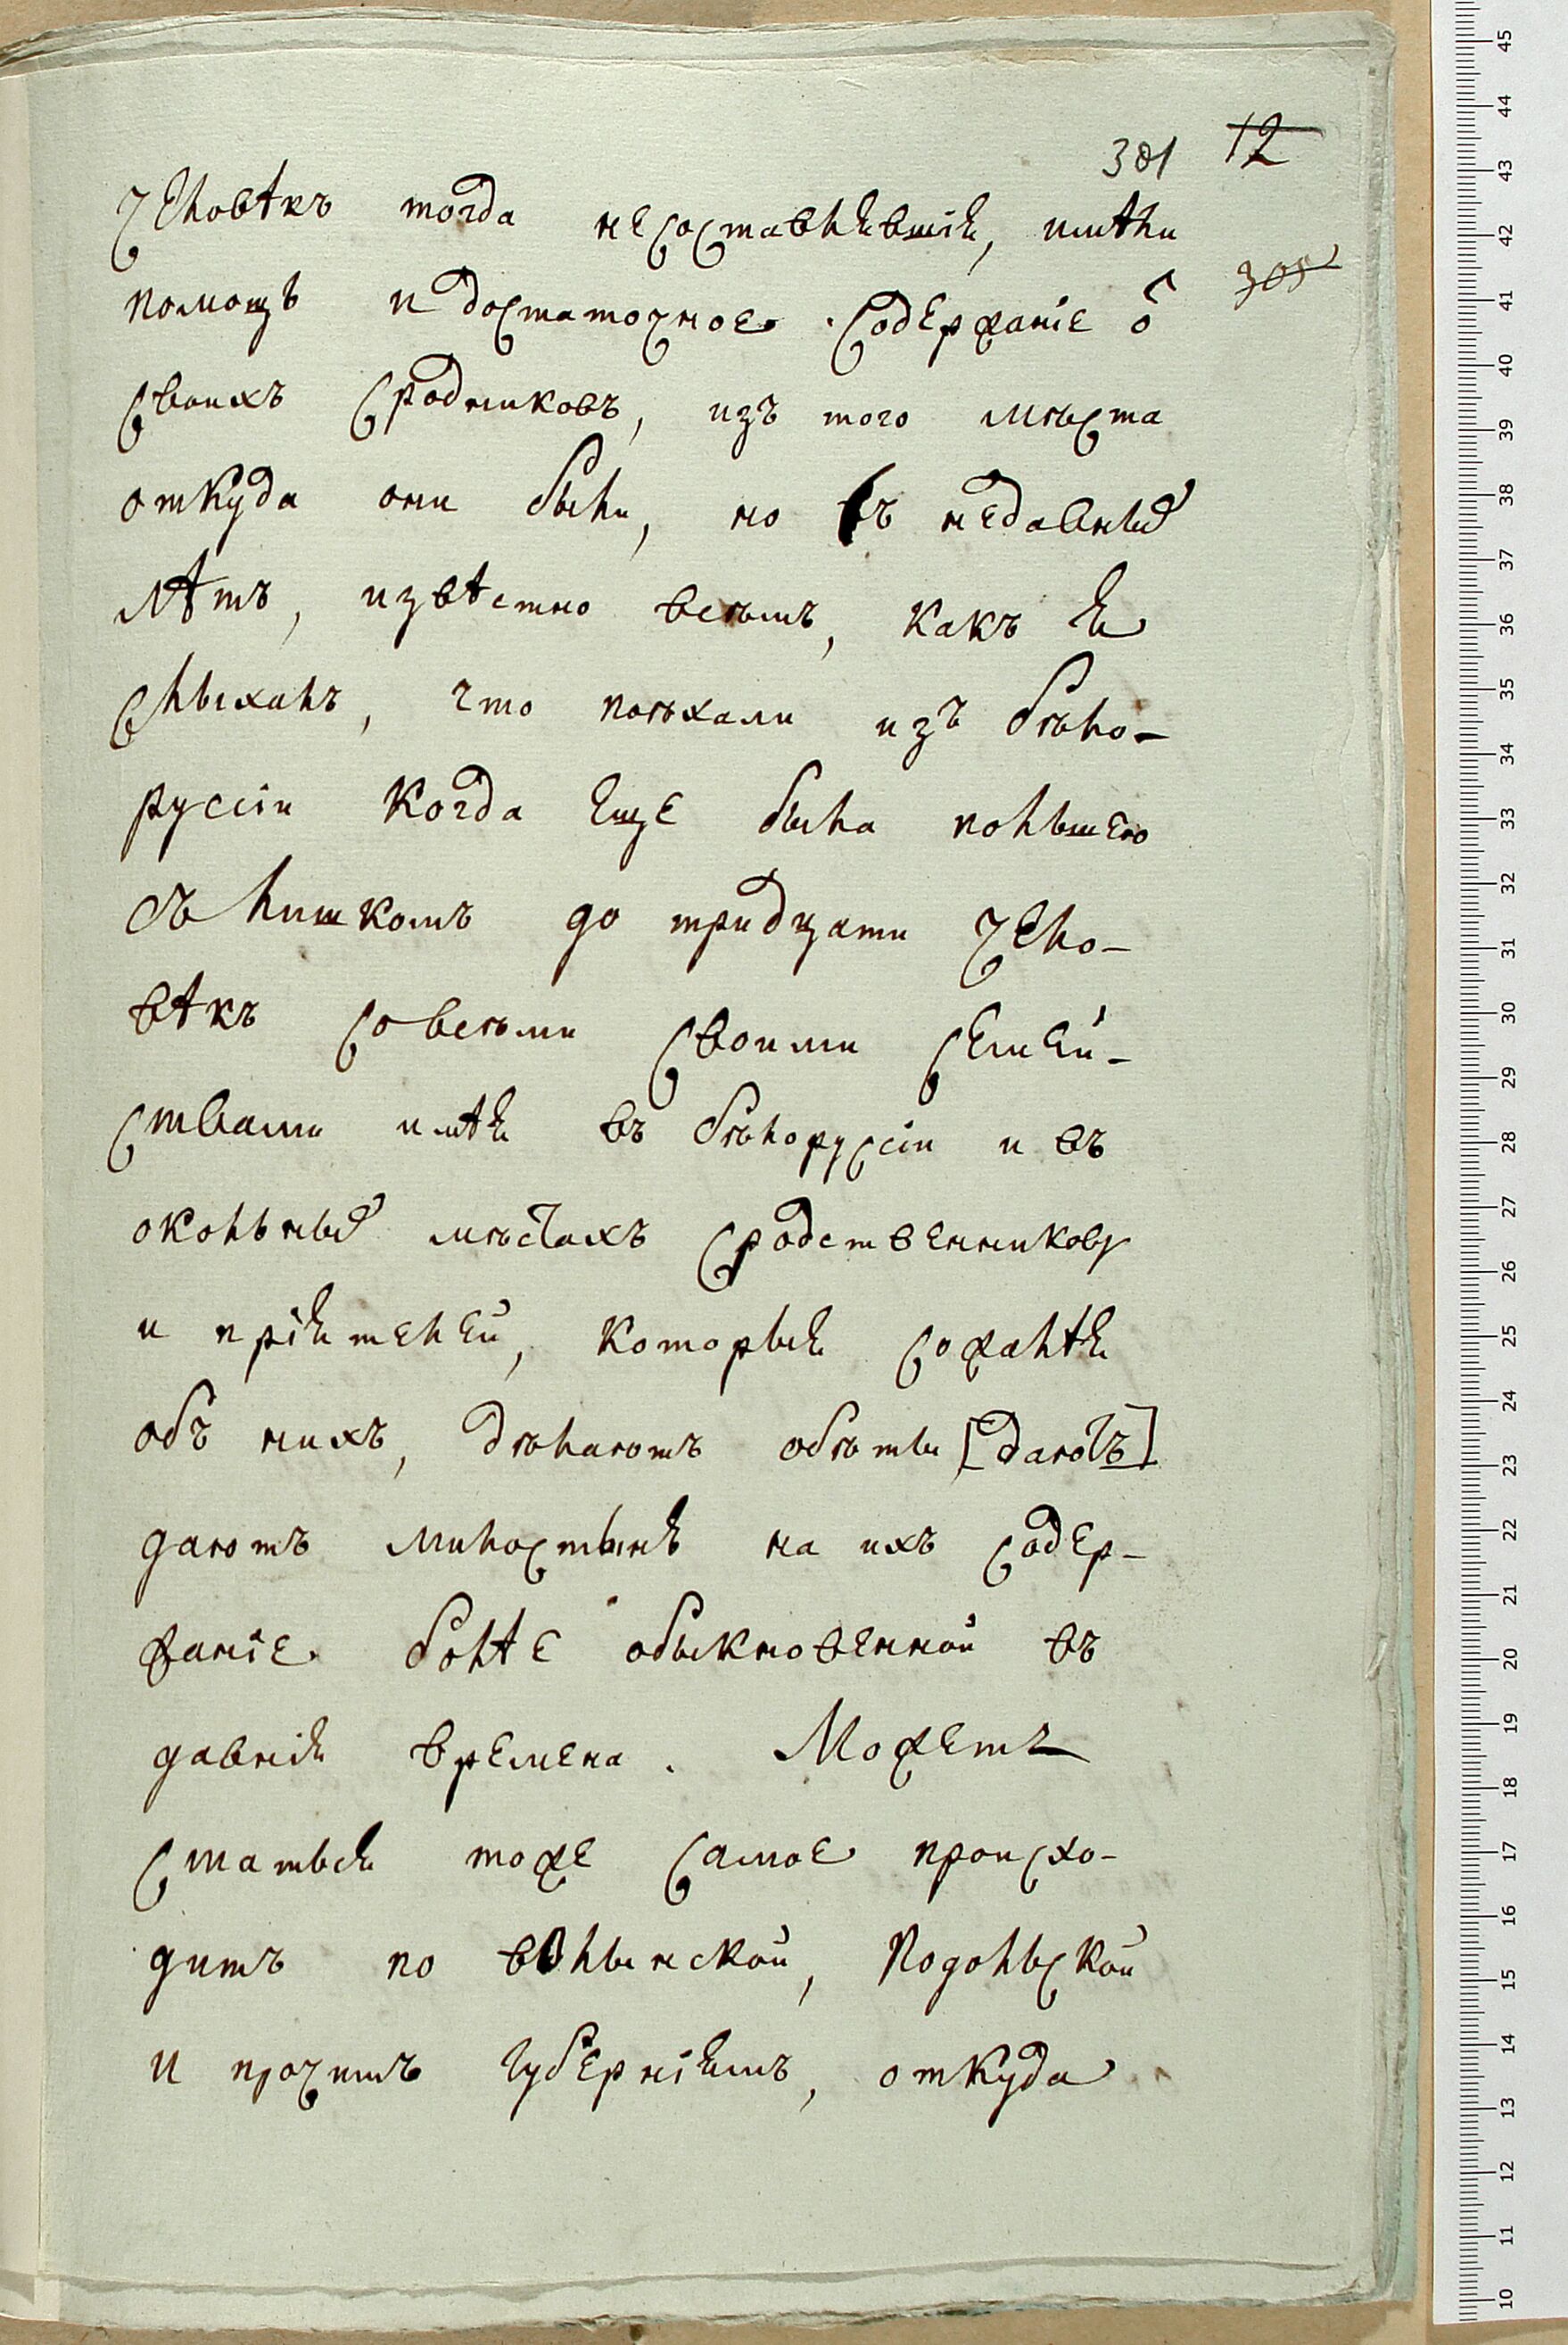 381 12
человѣкъ тогда несоставлявшiя, имѣли
305
помощь и достаточное содержанiе о͡т
своихъ сродниковъ, изъ того мѣста
откуда они были, но въ недавныхъ
лѣтъ, извѣстно всѣмъ, какъ я
слыхалъ, что поѣхали изъ бѣло-
руссiи когда еще была польшею
съ лишкомъ до тридцати чело-
вѣкъ со всѣми своими семей-
ствами имѣя въ бѣлоруссiи и въ
окольныхъ мѣстахъ сродственниковъ
и прiятелей, которыя сожалѣя
объ нихъ, дѣлаютъ обѣты [даютъ]
даютъ милостынѣ на ихъ содер-
жанiе болѣе обыкновенной въ
давнiя времена. Можетъ
статься тоже самое происхо-
дитъ по волынской, подольской
и прочимъ губернiямъ, откуда